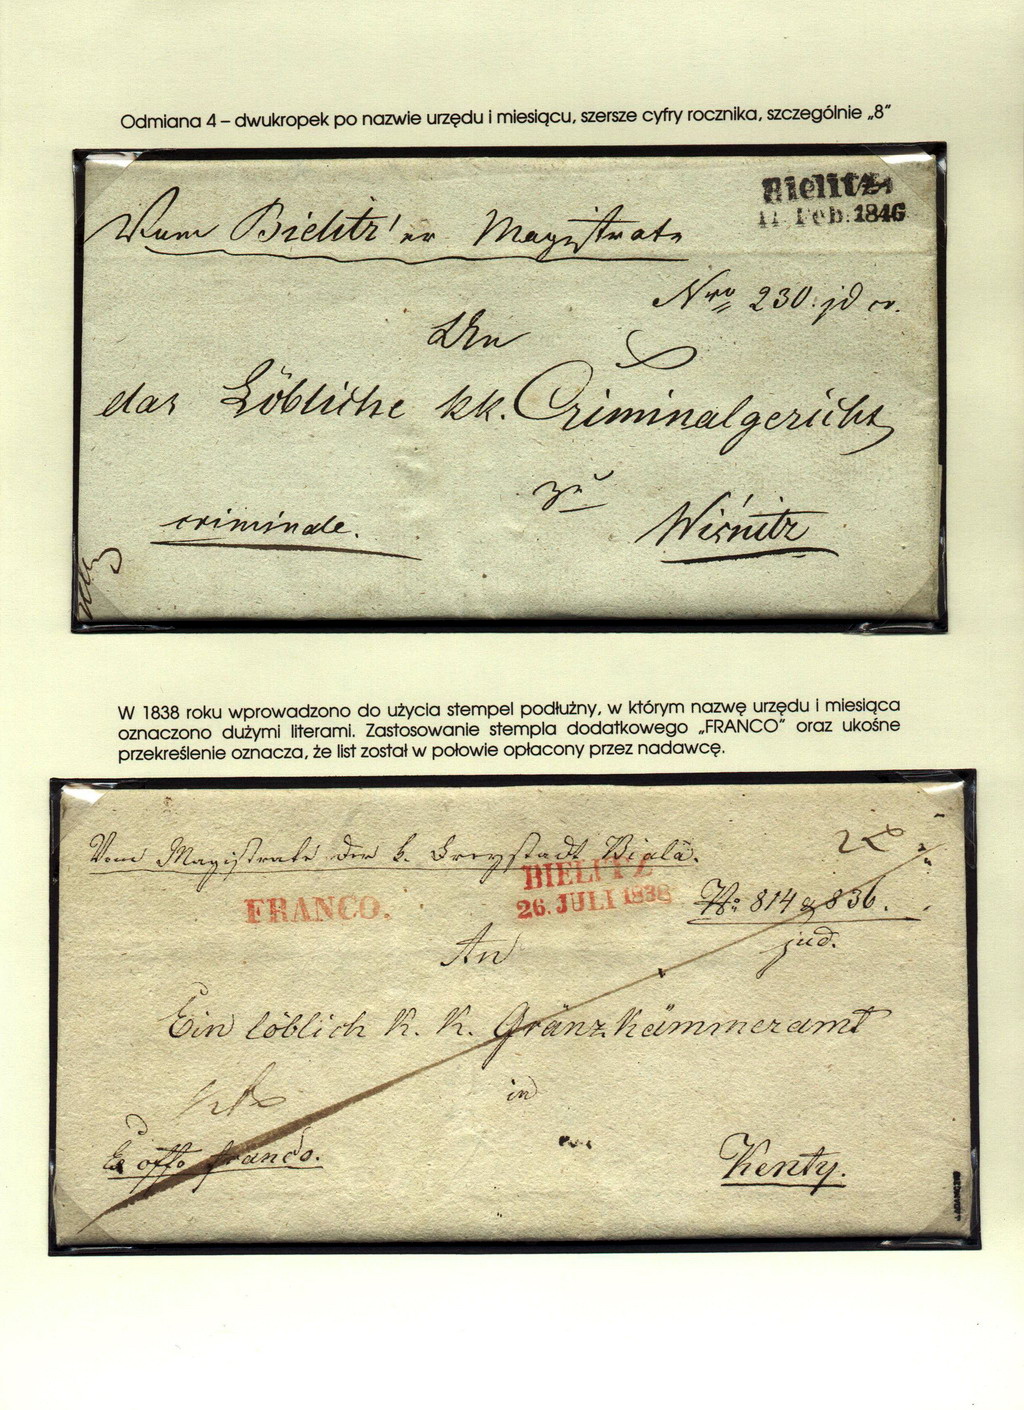 Odmiana 4 – dwukropek po nazwie urzędu i miesiącu, szersze cyfry rocznika, szczególnie „8”
Bielitz:
11 Feb: 1846
Vom Bielitz'er Magistrate
Nro 230. jd cr.
An
das Löbliche kk. Criminalgericht
zu
criminale.
Wisnitz
W 1838 roku wprowadzono do użycia stempel podłużny, w którym nazwę urzędu i miesiąca
oznaczono dużymi literami. Zastosowanie stempla dodatkowego „FRANCO” oraz ukośne
przekreślenie oznacza, że list został w połowie opłacony przez nadawcę.
Vom Magistrate der k. Freystadt Biala.
BIELITZ
FRANCO.
26. JULI 1838
No 814 & 836.
jud.
An
Ein löblich K. K. Gränzkämmeramt
in
Ex offo franco.
Kenty.